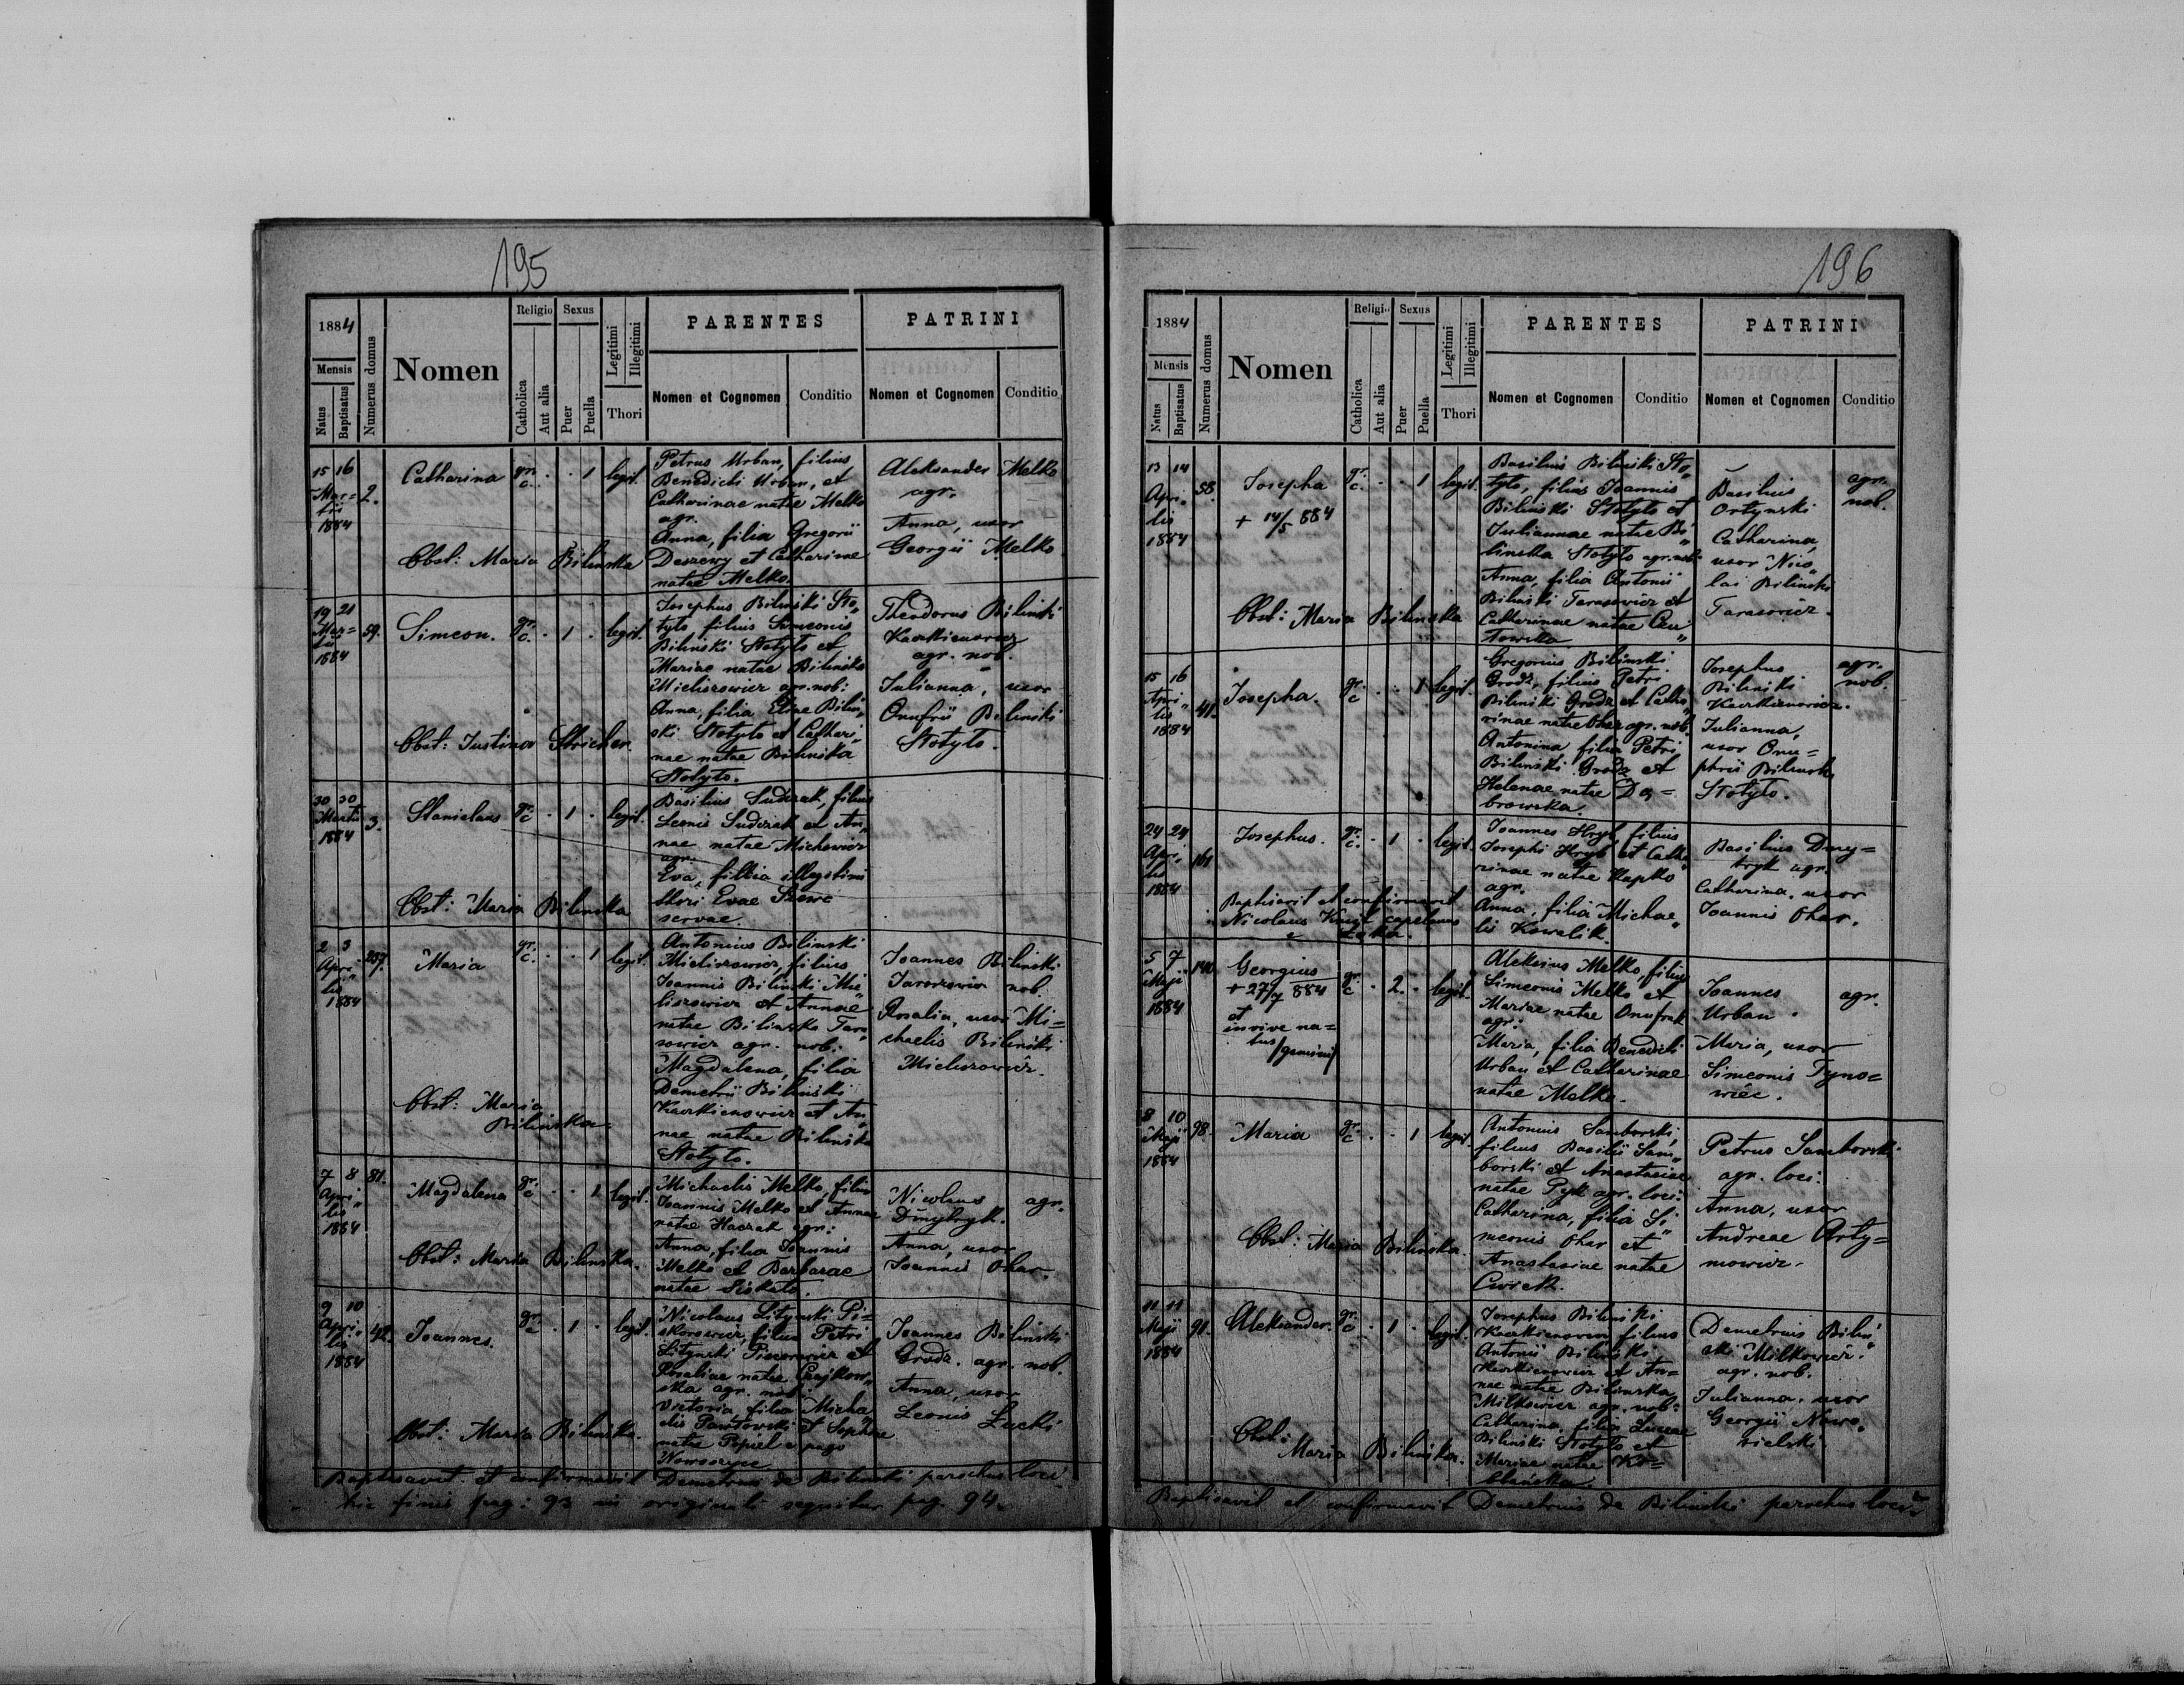 195
1884
Mensis
Natus
Baptisatus
Numerus domus
Nomen
Religio
Catholica
Aut alia
Sexus
Puer
Puella
Legitimi
Illegitimi
Thori
PARENTES
Nomen et Cognomen
Conditio
PATRINI
Nomen et Cognomen
Conditio
15 16
1884
2.
Catharina
gr. c. · · 1 legit.
Obst: Maria Bilinska
Petrus Urban, filius
Benedicti Urban, et
Catharinae natae Melko
agr.
Anna, filia Gregorii
Deszewy et Catharinae
natae Melko.
Aleksander Melko
agr.
Anna, uxor
Georgii Melko
19 21
1884
59.
Simeon.
gr. c. · 1 · legit.
Obst: Justina
Josephus Bilinski Sto„
tyto, filius Simeonis
Bilinski Stotyto et
Mariae natae Bilinska
Micliszowicz agr. nob:
Anna, filia Eliae Bilin„
ski Stotyto et Cathari„
nae natae Bilinska
Stotyto.
Theodorus Bilinski
agr. nob.
Julianna, uxor
Onufrii Bilinski
Stotyto.
30 30
Martii
1884
3.
Stanislaus
gr. c · 1 · legit.
Obst: Maria Bilinska
Basilius Sudczak, filius
Leonis Sudczak et An„
nae natae Michowicz
agr.
Eva, filia illegitimi
thori Evae
servae.
2 3
Apri„
lis
1884
Maria
gr. c. · · 1 legit.
Obst: Maria
Bilinska.
Antonius Bilinski
Micliszowicz, filius
Joannis Bilinski Mic„
liszowicz et Annae
natae Bilinska Tara„
sowicz agr. nob:
Magdalena, filia
Demetrii Bilinski
et An„
nae natae Bilinska
Stotyto.
Joannes Bilinski
nob.
Rosalia, uxor Mi=
chaelis Bilinski
Micliszowicz.
7 8
Apri„
lis
1884
81.
Magdalena
gr. c · · 1 legit.
Obst: Maria Bilinska.
Michaelis Melko, filius
Joannis Melko et Annae
natae Haczak agr:
Anna, filia Joannis
Melko et Barbarae
natae
Nicolaus agr.
Dmytryk.
Anna, uxor
Joannis Ohar.
9 10
Apri„
lis
1884
42.
Joannes.
gr. c · 1 · legit.
Obst: Maria Bilinska.
Nicolaus Litynski Pi=
filius Petri
Litynski et
Rosaliae natae Czajkow„
ska agr. nob:
Victoria, filia Micha
elis Pawtowski et Sophiae
natae Popiel e pago
Joannes Bilinski
Grodz. agr. nob.
Anna, uxor
Leonis Łucki
Baptisavit et confirmavit Demetrius de Bilinski parochus loci
hic finis pag: 93 in originali sequitur pag. 94.
196
1884
Mensis
Natus
Baptisatus
Numerus domus
Nomen
Religio
Catholica
Aut alia
Sexus
Puer
Puella
Legitimi
Illegitimi
Thori
PARENTES
Nomen et Cognomen
Conditio
PATRINI
Nomen et Cognomen
Conditio
13 14
Apri„
lis
1884
58.
Josepha
+ 14/5 884
gr. c. · · 1 legit.
Obst: Maria Bilinska
Basilius Bilinski Sto„
tyto, filius Joannis
Bilinski Stotyto et
Juliannae natae Bi„
linska Stotyto agr. nob:
Anna, filia Antonii
Bilinski Tarasowicz et
Catharinae natae
Basilius agr.
Ortynski nob.
Catharina,
uxor Nico„
lai Bilinski
Tarasowicz.
15 16
Apri„
lis
1884
41.
Josepha.
gr. c · · 1 legit.
Gregorius Bilinski
Grodz, filius Petri
Bilinski Grodz et Catha„
rinae natae Ohar agr. nob:
Antonina, filia Petri
Bilinski Grodz et
Helenae natae Dą=
browska.
Josephus agr.
Bilinski nob.
Julianna,
uxor Onu=
phrii Bilinski
Stotyto.
24 24
Apri„
lis
1884
161.
Josephus.
gr. c. · 1 · legit.
Baptisavit et confirmavit
Nicolaus capelanus
Joannes Hryb, filius
Josephi Hryb et Catha„
rinae natae Kapko
agr.
Anna, filia Michae„
lis Kowalik.
Basilius Dmy=
tryk agr.
Catharina, uxor
Joannis Ohar.
5 7
Maji
1884
140.
Georgius
+ 27/7 884
et
invive na=
tus /gemini/
gr. c · 2. · legit.
Aleksius Melko, filius
Simeonis Melko et
Mariae natae Onufrak
agr:
Maria, filia Benedicti
Urban et Catharinae
natae Melko.
Joannes agr.
Urban.
Maria, uxor
Simeonis Tyno=
wiec.
8 10
Maji
1884
98.
Maria
gr. c · · 1 legit.
Obst: Maria Bilinska.
Antonius Samborski,
filius Basilii Sam„
borski et Anastasiae
natae Pyk agr. loci:
Catharina, filia Si„
meonis Ohar et
Anastasiae natae
Cwiek.
Petrus Samborski
agr. loci:
Anna, uxor
Andreae Arty=
mowicz.
11 11
Maji
1884
91.
Aleksander.
gr. c · 1 · legit.
Obst:
Maria Bilinska.
Josephus Bilinski
filius
Antonii Bilinski
et An=
nae natae Bilinska
Milkowicz agr. nob:
Catharina, filia Lucae
Bilinski Stotyto et
Mariae natae Ko=
blanska.
Demetrius Bilin„
ski Milkowicz.
agr. nob.
Julianna, uxor
Georgii Nowo„
sielski.
Baptisavit et confirmavit Demetrius de Bilinski parochus loci